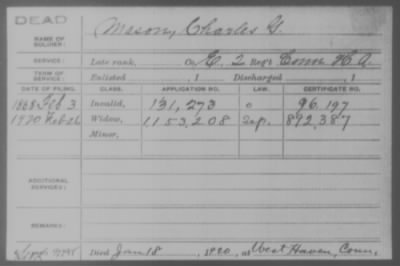 DEAD
NAME OF SOLDIER: Mason, Charles G.
SERVICE: Late rank, Co. E, 2 Reg't Conn H A
TERM OF SERVICE: Enlisted , 1 Discharged , 1
DATE OF FILING. CLASS. APPLICATION NO. LAW. CERTIFICATE NO.
1868 Feb 3 Invalid, 131,273 C 96,197
1920 Feb 26 Widow, 1153,208 892,387
Minor,
ADDITIONAL SERVICES:
REMARKS:
Died Jan 18, 1920, at West Haven, Conn.